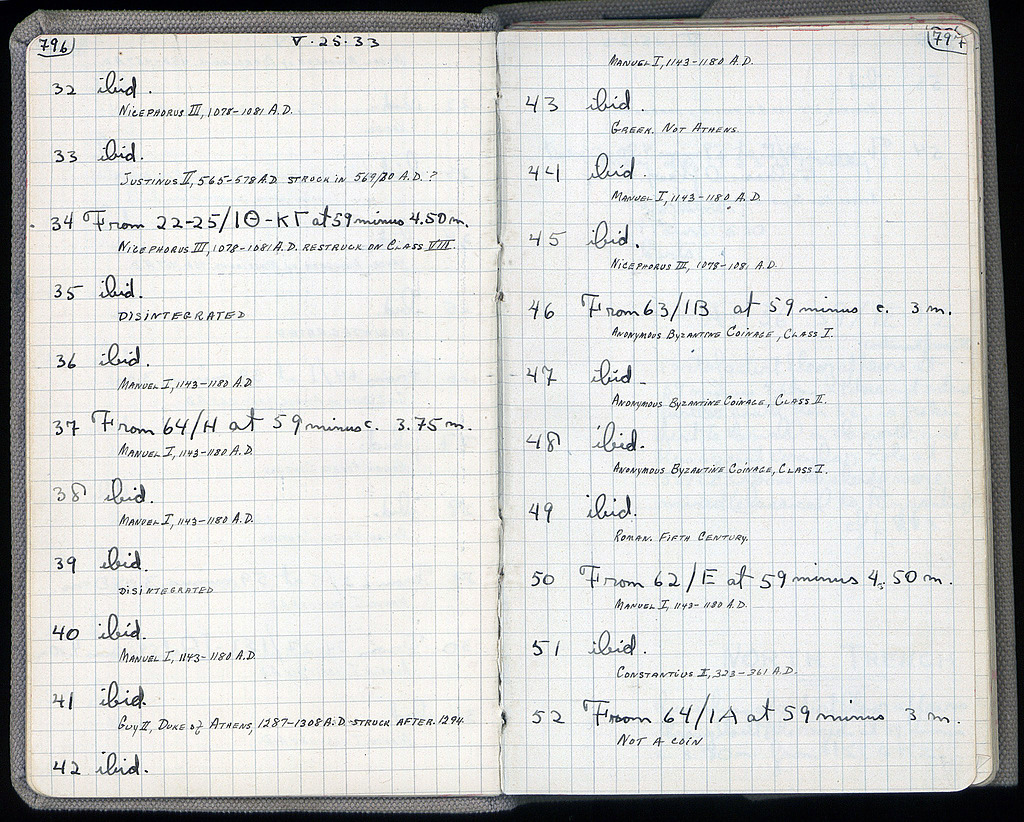 796
V·25·33
32 ibid.
Nicephorus III, 1078-1081 A.D.
33 ibid.
Justinus II, 565-578 A.D. struck in 569/70 A.D.?
34 From 22-25/ΙΘ-ΚΓ at 59 minus 4.50 m.
Nicephorus III, 1078-1081 A.D. restruck on Class VIII.
35 ibid.
Disintegrated
36 ibid.
Manuel I, 1143-1180 A.D
37 From 64/H at 59 minus c. 3.75 m.
Manuel I, 1143-1180 A.D
38 ibid.
Manuel I, 1143-1180 A.D.
39 ibid.
Disintegrated
40 ibid.
Manuel I, 1143-1180 A.D
41 ibid.
Guy II, Duke of Athens, 1287-1308 A.D. struck after 1294.
42 ibid.
797
Manuel I, 1143-1180 A.D.
43 ibid.
Greek. Not Athens.
44 ibid.
Manuel I, 1143-1180 A.D.
45 ibid.
Nicephorus III, 1078-1081 A.D.
46 From 63/ΙΒ at 59 minus c. 3 m.
Anonymous Byzantine Coinage, Class I.
47 ibid.
Anonymous Byzantine Coinage, Class II.
48 ibid.
Anonymous Byzantine Coinage, Class I.
49 ibid.
Roman. Fifth Century.
50 From 62/E at 59 minus 4.50 m.
Manuel I, 1143-1180 A.D.
51 ibid.
Constantius II, 323-361 A.D.
52 From 64/ΙΑ at 59 minus 3 m.
Not a coin